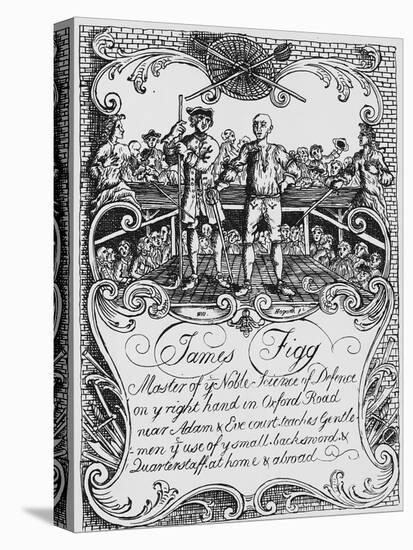 Will. Hogarth f.
James Figg
Master of yᵉ Noble Science of Defence
on y right hand in Oxford Road
near Adam & Eve court teaches Gentle
-men yᵉ use of y small, backsword, &
Quarterstaff, at home & abroad